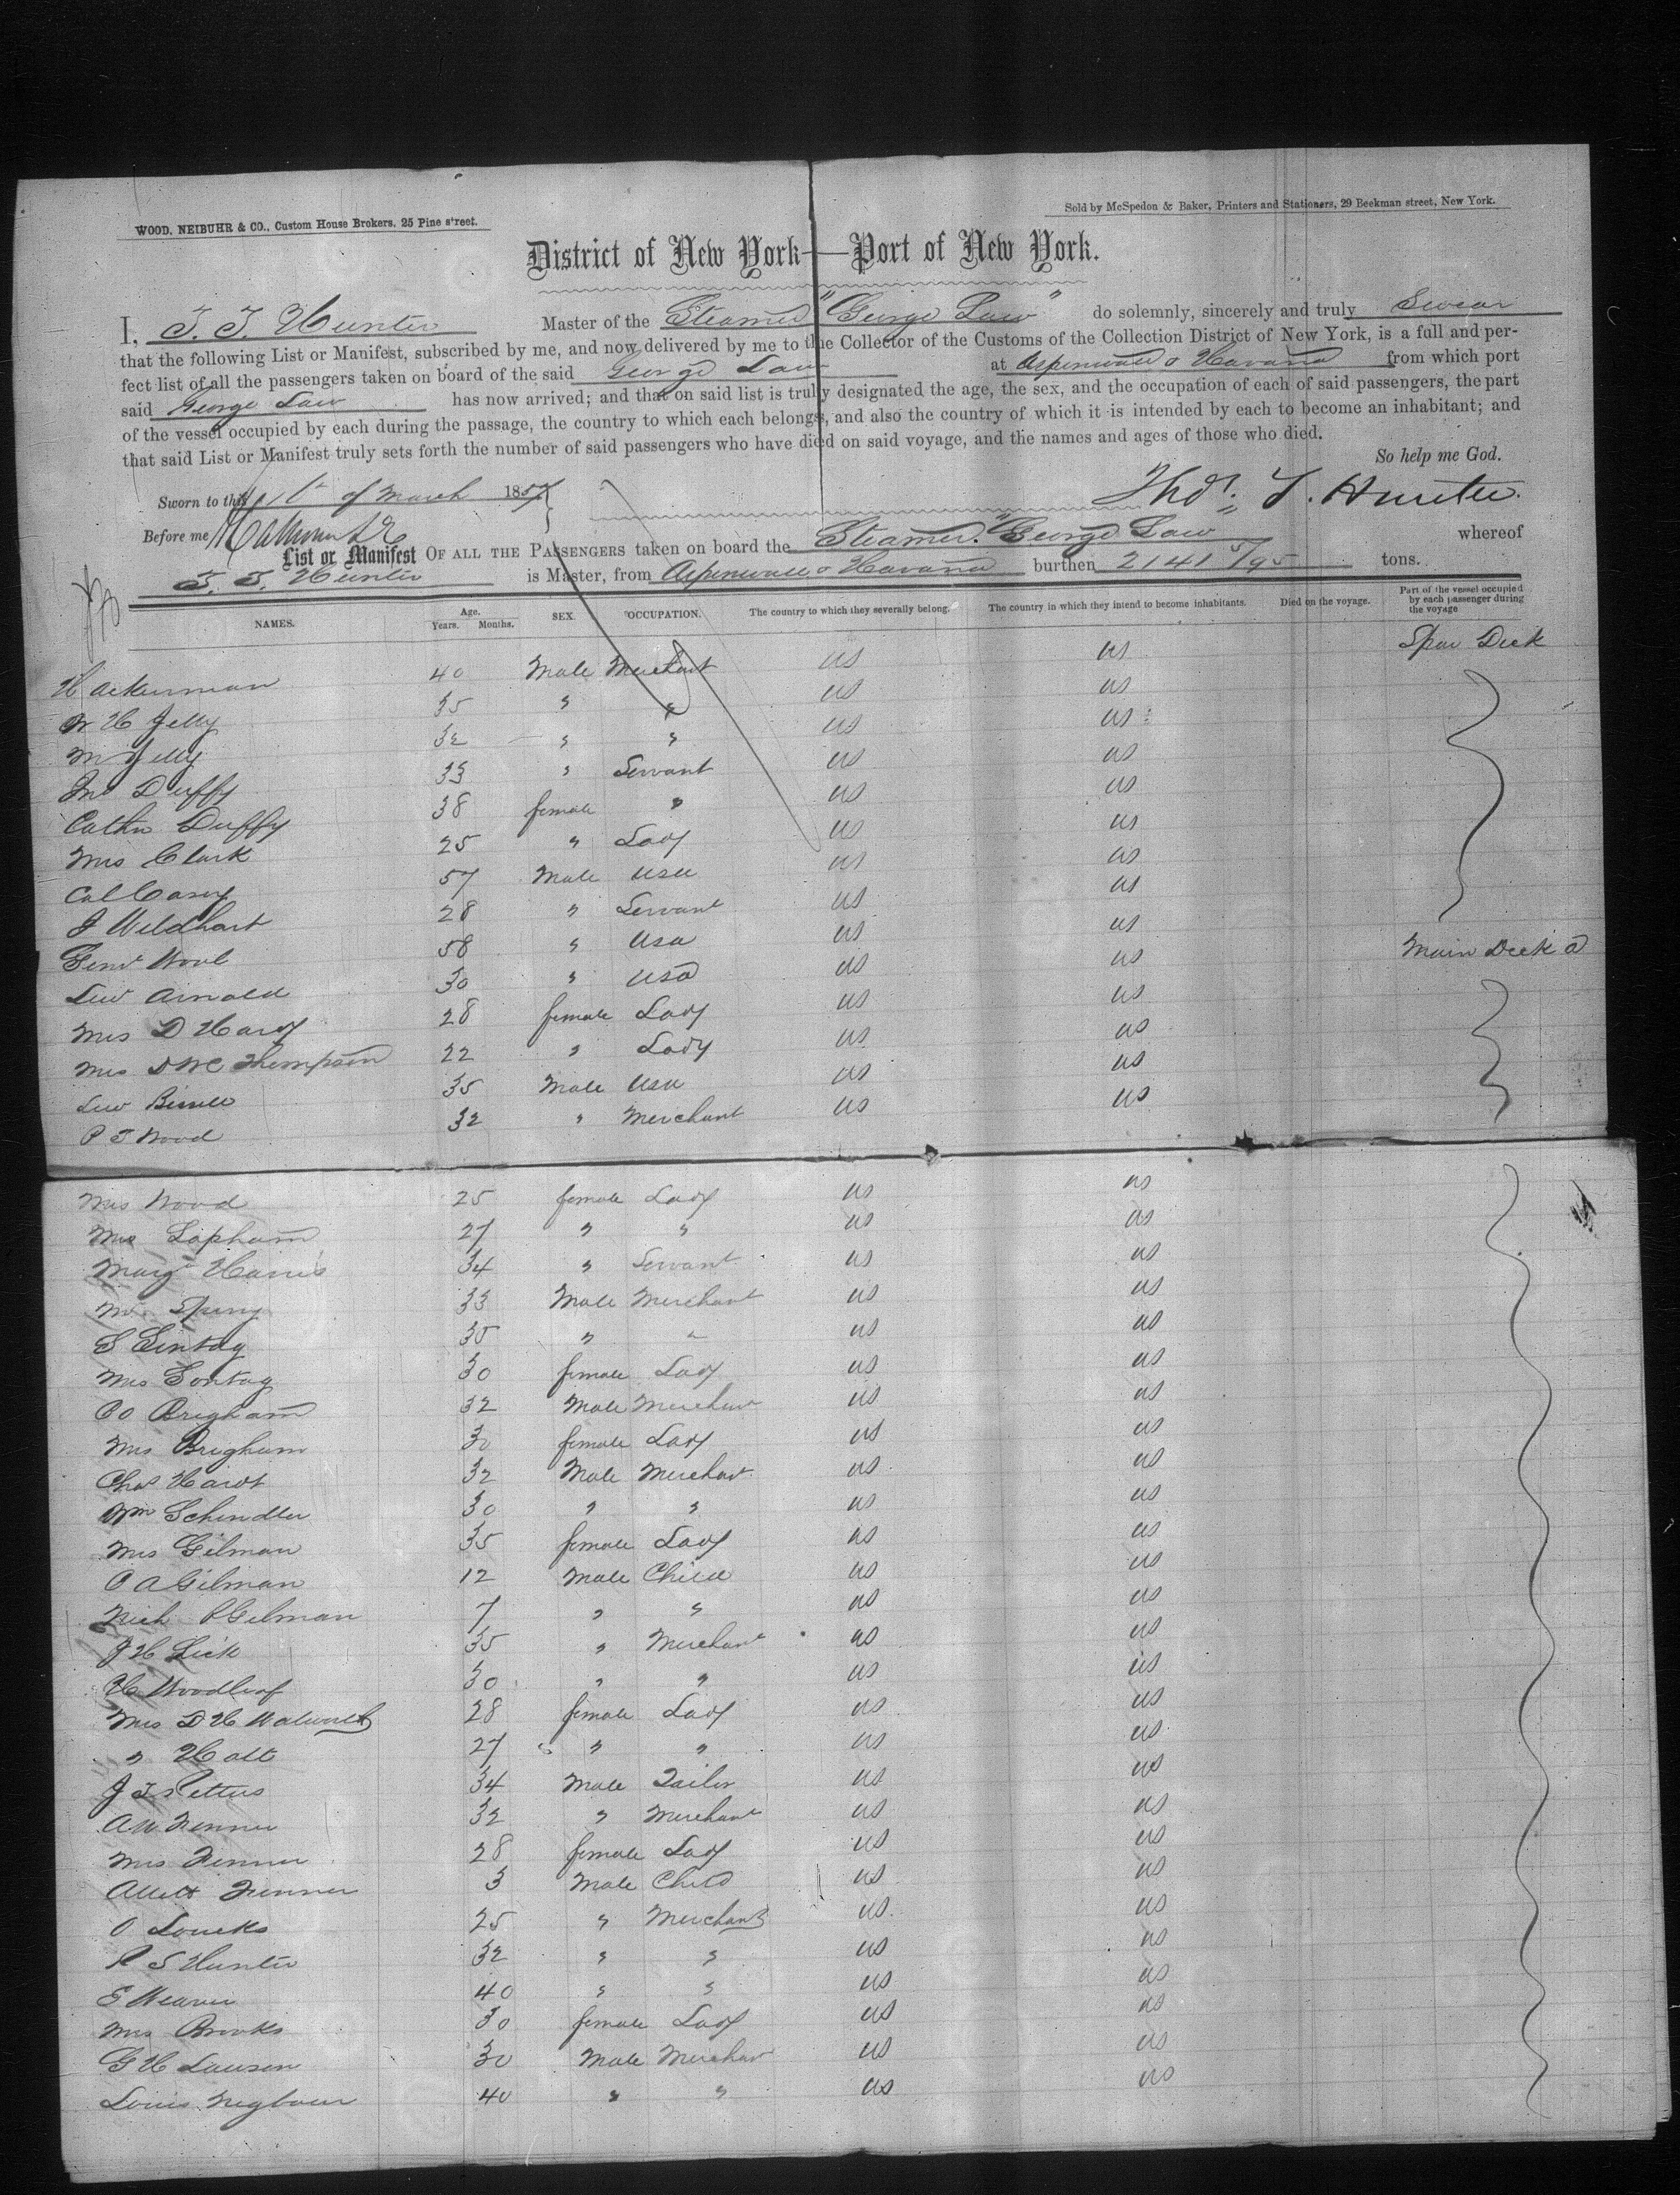 WOOD, NEIBUHR & CO., Custom House Brokers, 25 Pine street.
Sold by McSpedon & Baker, Printers and Stationers, 29 Beekman street, New York.
District of New York—Port of New York.
I, T. T. Hunter Master of the Steamer "George Law" do solemnly, sincerely and truly Swear
that the following List or Manifest, subscribed by me, and now delivered by me to the Collector of the Customs of the Collection District of New York, is a full and per-
fect list of all the passengers taken on board of the said George Law at Aspinwall & Havana from which port
said George Law has now arrived; and that on said list is truly designated the age, the sex, and the occupation of each of said passengers, the part
of the vessel occupied by each during the passage, the country to which each belongs, and also the country of which it is intended by each to become an inhabitant; and
that said List or Manifest truly sets forth the number of said passengers who have died on said voyage, and the names and ages of those who died.
So help me God.
Sworn to this of March 1857
Thos. T. Hunter.
Before me
List or Manifest OF ALL THE PASSENGERS taken on board the Steamer "George Law whereof
T. T. Hunter is Master, from Aspinwall & Havana burthen 2141 5/95 tons.
NAMES. Age. Years. Months. SEX. OCCUPATION. The country to which they severally belong. The country in which they intend to become inhabitants. Died on the voyage. Part of the vessel occupied by each passenger during the voyage
H Ackerman 40 Male Merchant US US Spar Deck
W H Jelly 35 " " US US
M Jelly 32 " " US US
Jno Duffy 33 " Servant US US
Cathn Duffy 38 female " US US
Mrs Clark 25 " Lady US US
Col Casey 57 Male USA US US
J Weldhart 28 " Servant US US
Genl Wool 58 " USA US US Main Deck
Lieu Arnold 30 " USA US US
Mrs D Hardy 28 female Lady US US
Mrs D W C Thompson 22 " Lady US US
Lieu 35 Male USA US US
P T Wood 32 " Merchant US US
Mrs Wood 25 female Lady US US
Mrs Lapham 27 " " US US
Margt Harris 34 " Servant US US
Mr Sperry 33 Male Merchant US US
S Sontag 35 " " US US
Mrs Sontag 30 female Lady US US
P O Brigham 32 Male Merchant US US
Mrs Brigham 30 female Lady US US
Chas Hardt 32 Male Merchant US US
Wm Schindler 30 " " US US
Mrs Gilman 35 female Lady US US
P A Gilman 12 Male Child US US
Nich P Gilman 7 " " US US
J H Lick 35 " Merchant US US
H Woodleaf 30 " " US US
Mrs D H Walworth 28 female Lady US US
" Holt 27 " " US US
J T Pettus 34 Male Tailor US US
A W Fenner 32 " Merchant US US
Mrs Fenner 28 female Lady US US
Fenner 3 Male Child US US
O Loucks 25 " Merchant US US
R S Hunter 32 " " US US
E Weaver 40 " " US US
Mrs Brooks 30 female Lady US US
G H Lawson 30 Male Merchant US US
Louis Negbaur 40 " " US US